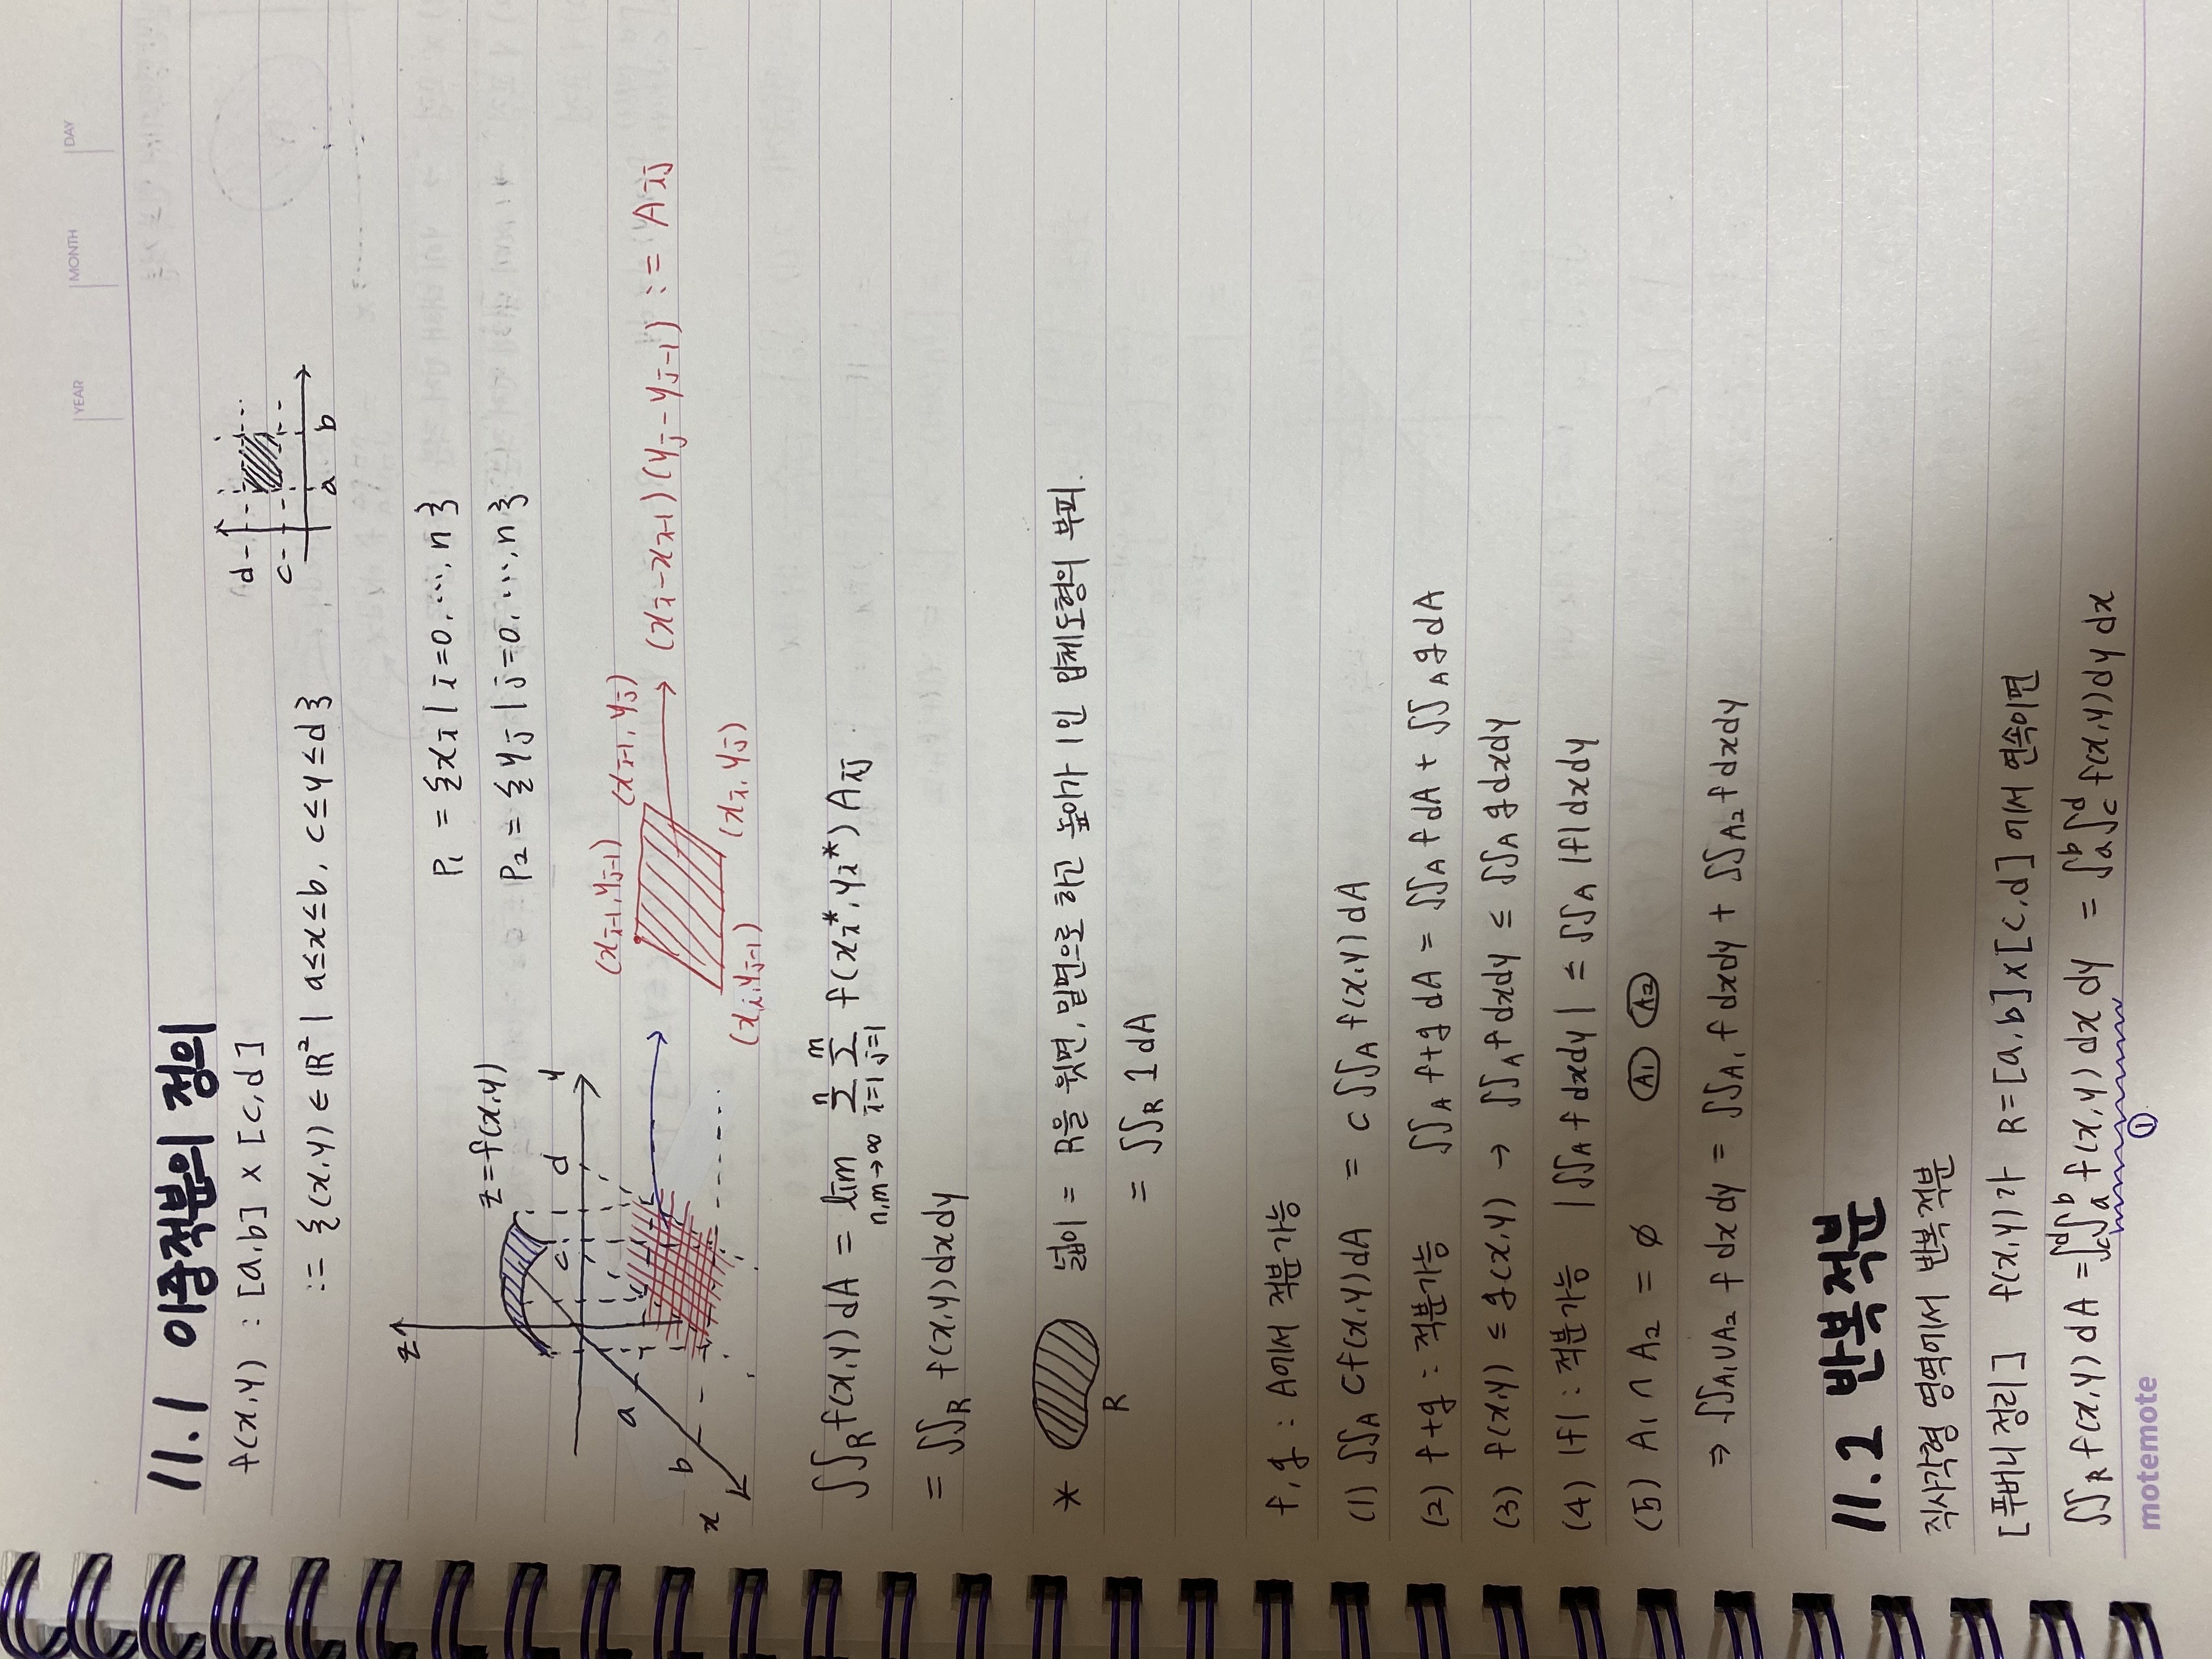 YEAR MONTH DAY
11.1 이중적분의 정의
f(x,y) : [a,b] × [c,d]
:= {(x,y) ∈ ℝ² | a≤x≤b, c≤y≤d}
d
c
a b
z
z=f(x,y)
c d y
a
b
x
P₁ = {xᵢ | i=0, ⋯, n}
P₂ = {yⱼ | j=0, ⋯, n}
(xᵢ₋₁, yⱼ₋₁) (xᵢ₋₁, yⱼ)
(xᵢ-xᵢ₋₁)(yⱼ-yⱼ₋₁) := Aᵢⱼ
(xᵢ, yⱼ₋₁) (xᵢ, yⱼ)
∬_R f(x,y) dA = lim_{n,m→∞} Σ_{i=1}^{n} Σ_{j=1}^{m} f(xᵢ*, yᵢ*) Aᵢⱼ
= ∬_R f(x,y) dxdy
* R 넓이 = R을 윗면, 밑면으로 하고 높이가 1인 입체도형의 부피.
= ∬_R 1 dA
f, g : A에서 적분가능
(1) ∬_A cf(x,y) dA = c ∬_A f(x,y) dA
(2) f+g : 적분가능 ∬_A f+g dA = ∬_A f dA + ∬_A g dA
(3) f(x,y) ≤ g(x,y) → ∬_A f dxdy ≤ ∬_A g dxdy
(4) |f| : 적분가능 |∬_A f dxdy| ≤ ∬_A |f| dxdy
(5) A₁ ∩ A₂ = ∅ A₁ A₂
⇒ ∬_{A₁∪A₂} f dxdy = ∬_{A₁} f dxdy + ∬_{A₂} f dxdy
11.2 반복적분
직사각형 영역에서 반복적분
[푸버니 정리] f(x,y)가 R=[a,b]×[c,d]에서 연속이면
∬_R f(x,y) dA = ∫_c^d ∫_a^b f(x,y) dx dy = ∫_a^b ∫_c^d f(x,y) dy dx
①
motemote